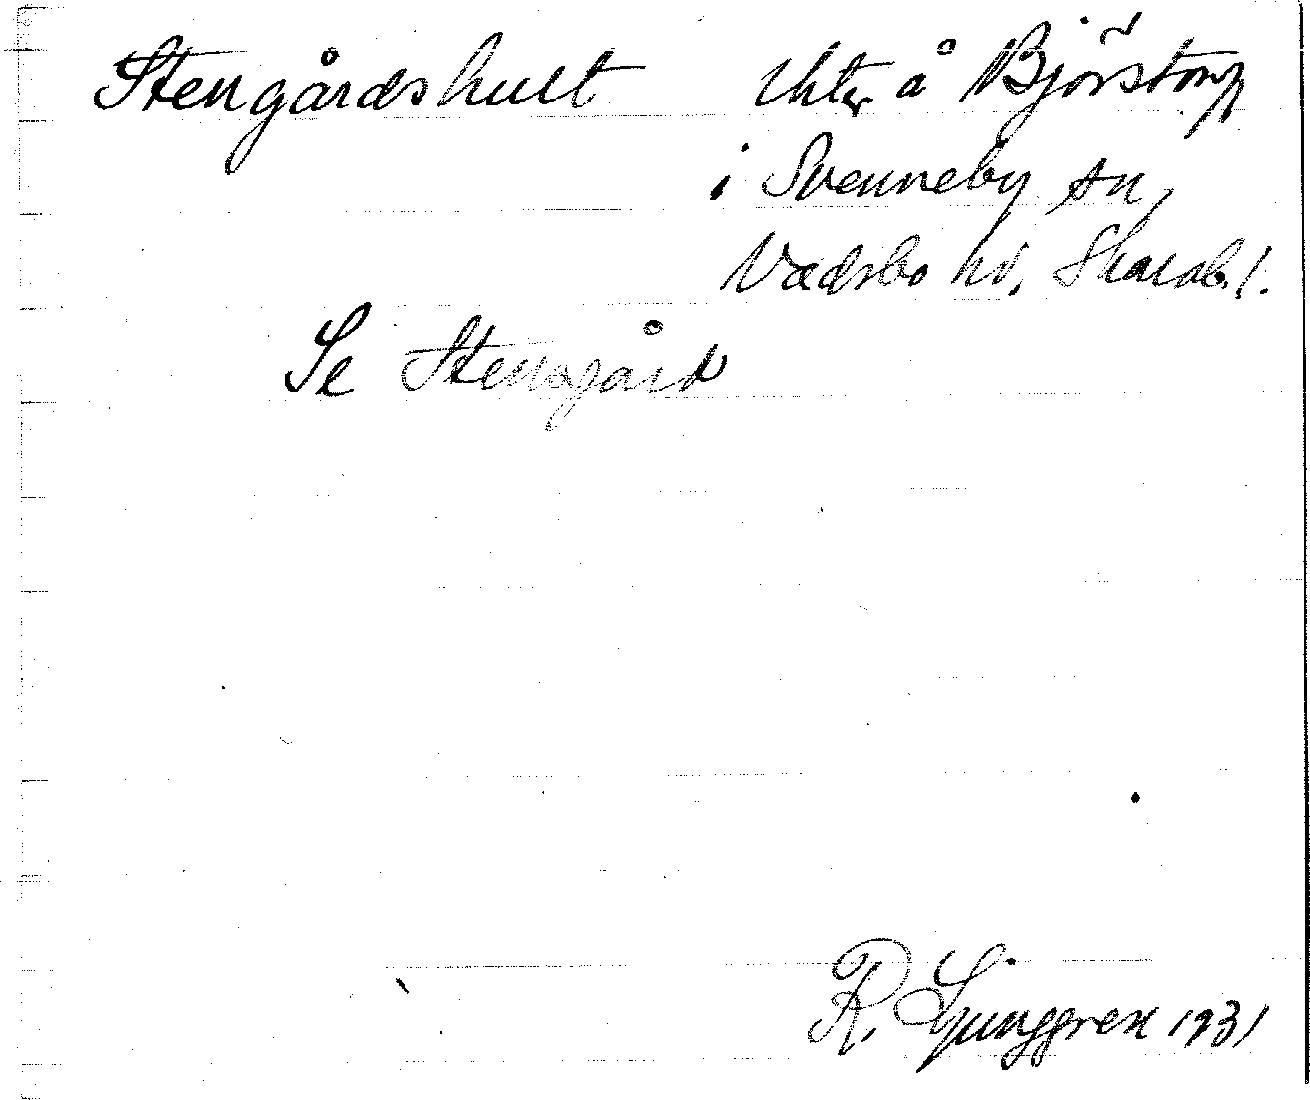 Stengårdshult lhter å Björstorp
i Svenneby sn,
Vadsbo hd, Skarab. l.
Se Stensgård
R. Ljunggren 1931